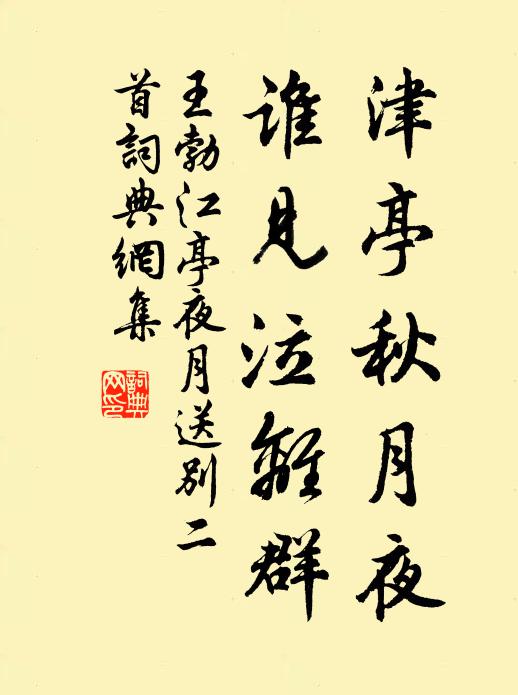 津亭秋月夜
誰見泣離群
王勃江亭夜月送別二
首詞典網集
詞典
网印